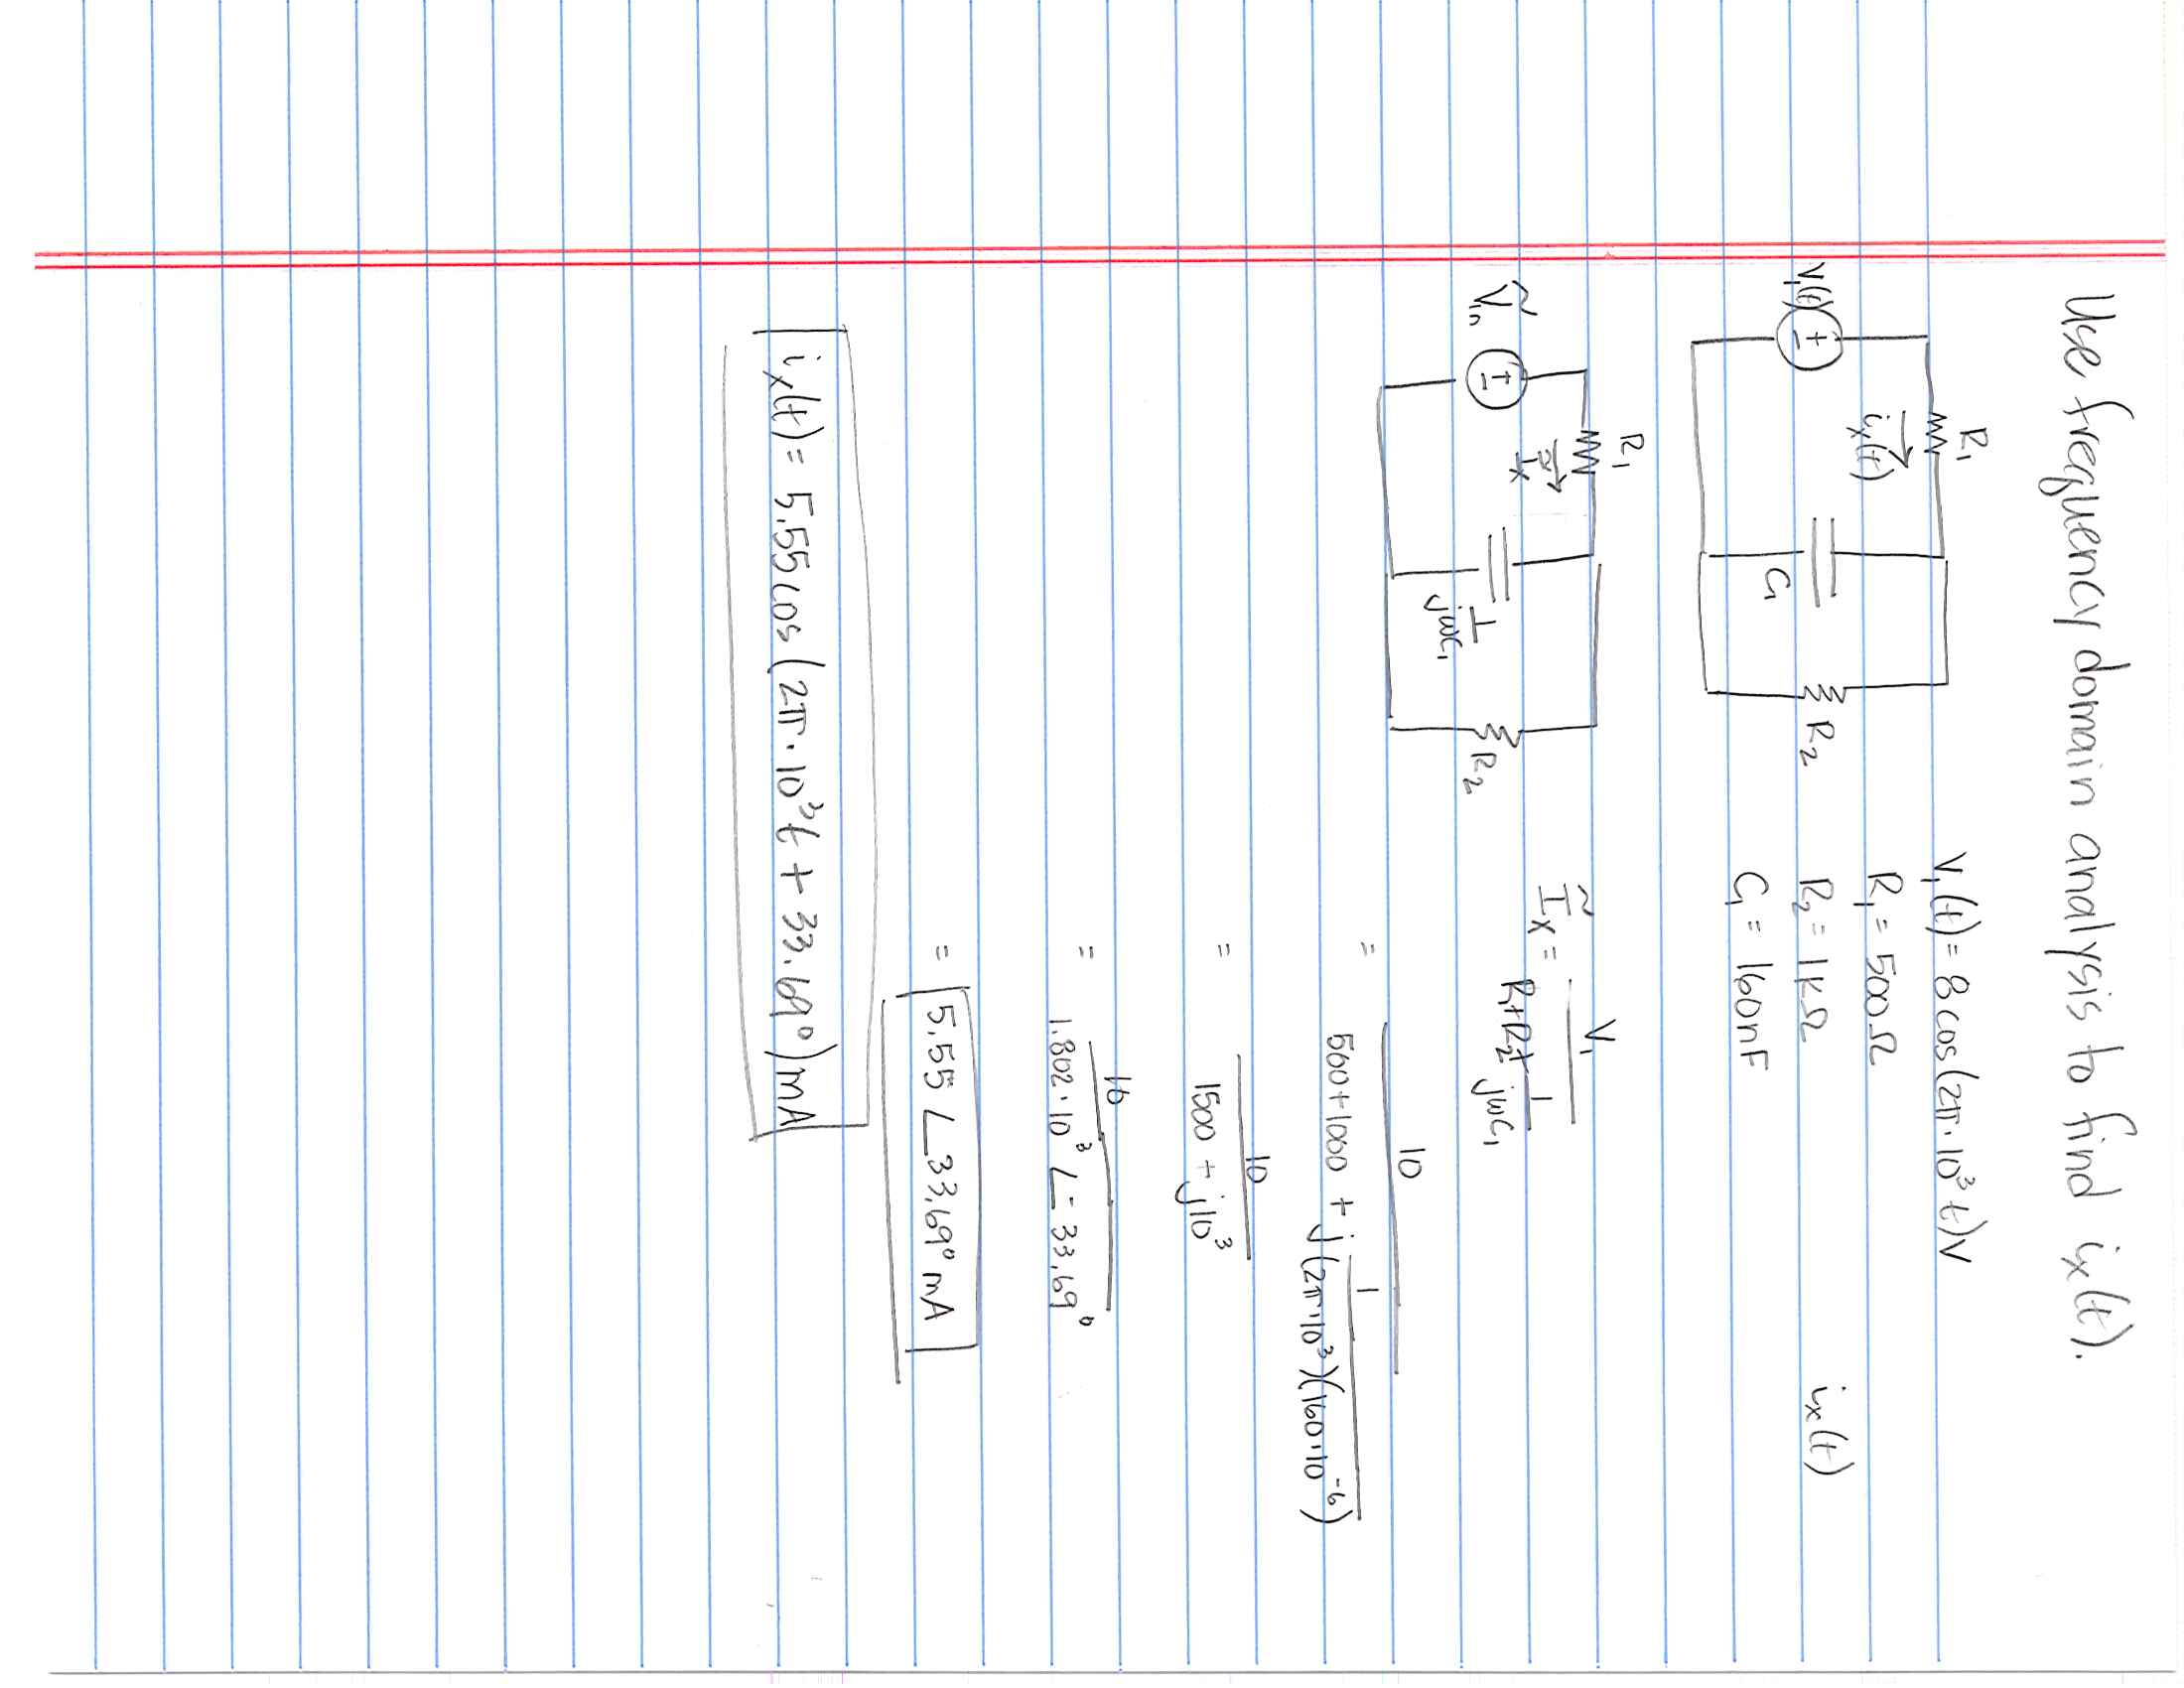 Use frequency domain analysis to find ix(t).
R1
V1(t)
+
-
ix(t)
C1
R2
V1(t) = 8cos(2π·10³t)V
R1 = 500Ω
R2 = 1kΩ
C1 = 160nF
ix(t)
R1
Ṽin
+
-
Ĩx
1/jωC1
R2
Ĩx = V1/(R1+R2+1/jωC1)
= 10/(500+1000 + 1/j(2π·10³)(160·10⁻⁶))
= 10/(1500 + j10³)
= 10/(1.802·10³∠-33.69°)
= 5.55∠33.69° mA
ix(t) = 5.55cos(2π·10³t + 33.69°)mA